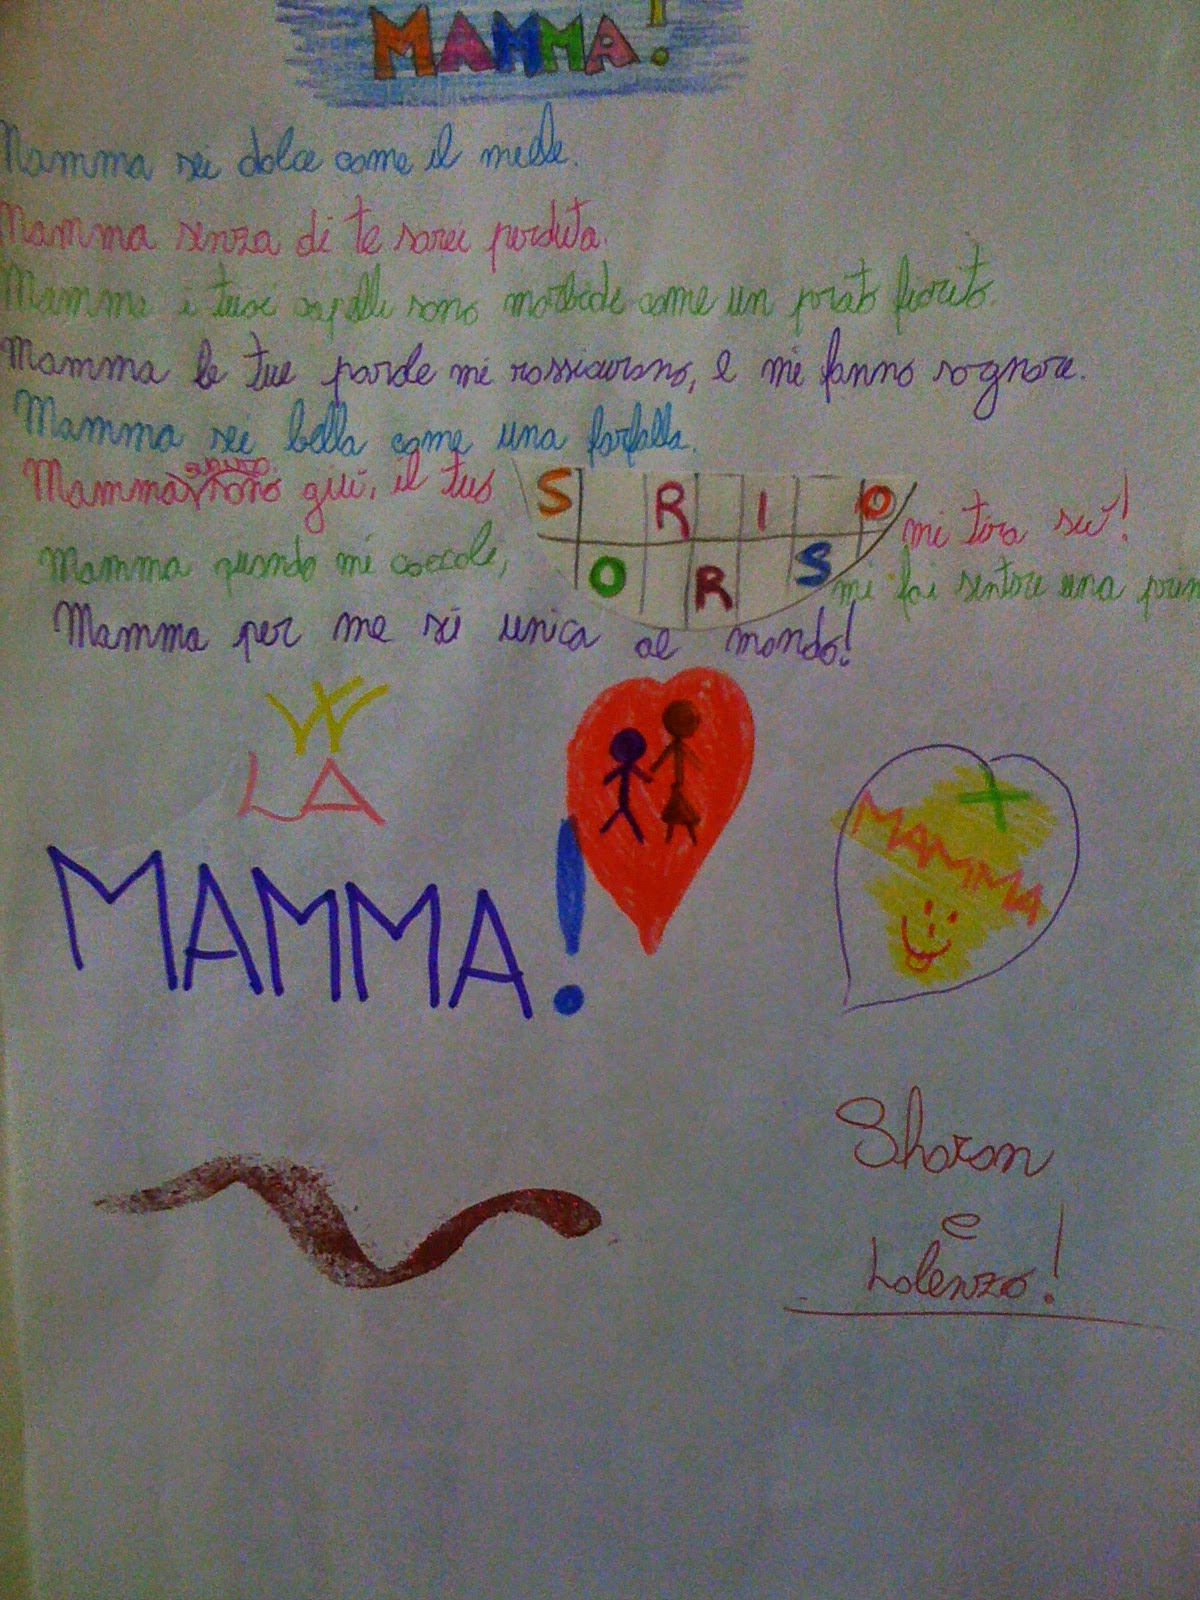 MAMMA!
Mamma sei dolce come il miele.
Mamma senza di te sarei perduta.
Mamma i tuoi capelli sono morbidi come un prato fiorito.
Mamma le tue parole mi rassicurano, e mi fanno sognare.
Mamma sei bella come una farfalla.
Mamma quando sono giù, il tuo SORRISO mi tira su!
Mamma quando mi coccoli, mi fai sentire una prin
Mamma per me sei unica al mondo!
W
LA
MAMMA!
+
MAMMA
Sharon
e
Lolenzo!